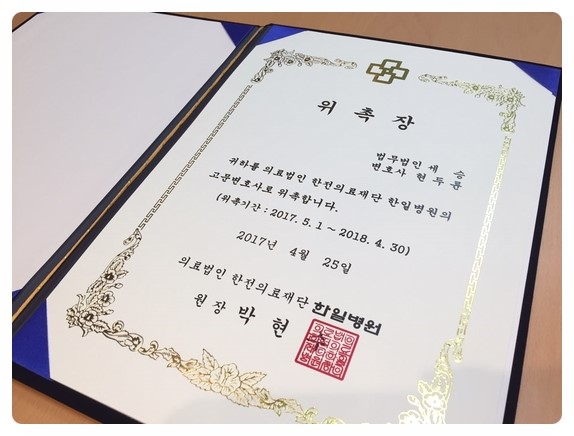 위 촉 장
법무법인 세 승
변호사 현 두 륜
귀하를 의료법인 한전의료재단 한일병원의
고문변호사로 위촉합니다.
(위촉기간 : 2017. 5. 1 ~ 2018. 4. 30)
2017년 4월 25일
의료법인 한전의료재단 한일병원
원장 박 현 수